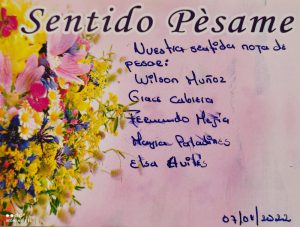 Sentido Pèsame
Nuestra sentida nota de
pesar:
Wilson Muñoz
Grace Cabrera
Fernando Mejía
Mayra Paladines
Elsa Avilés
07/04/2022